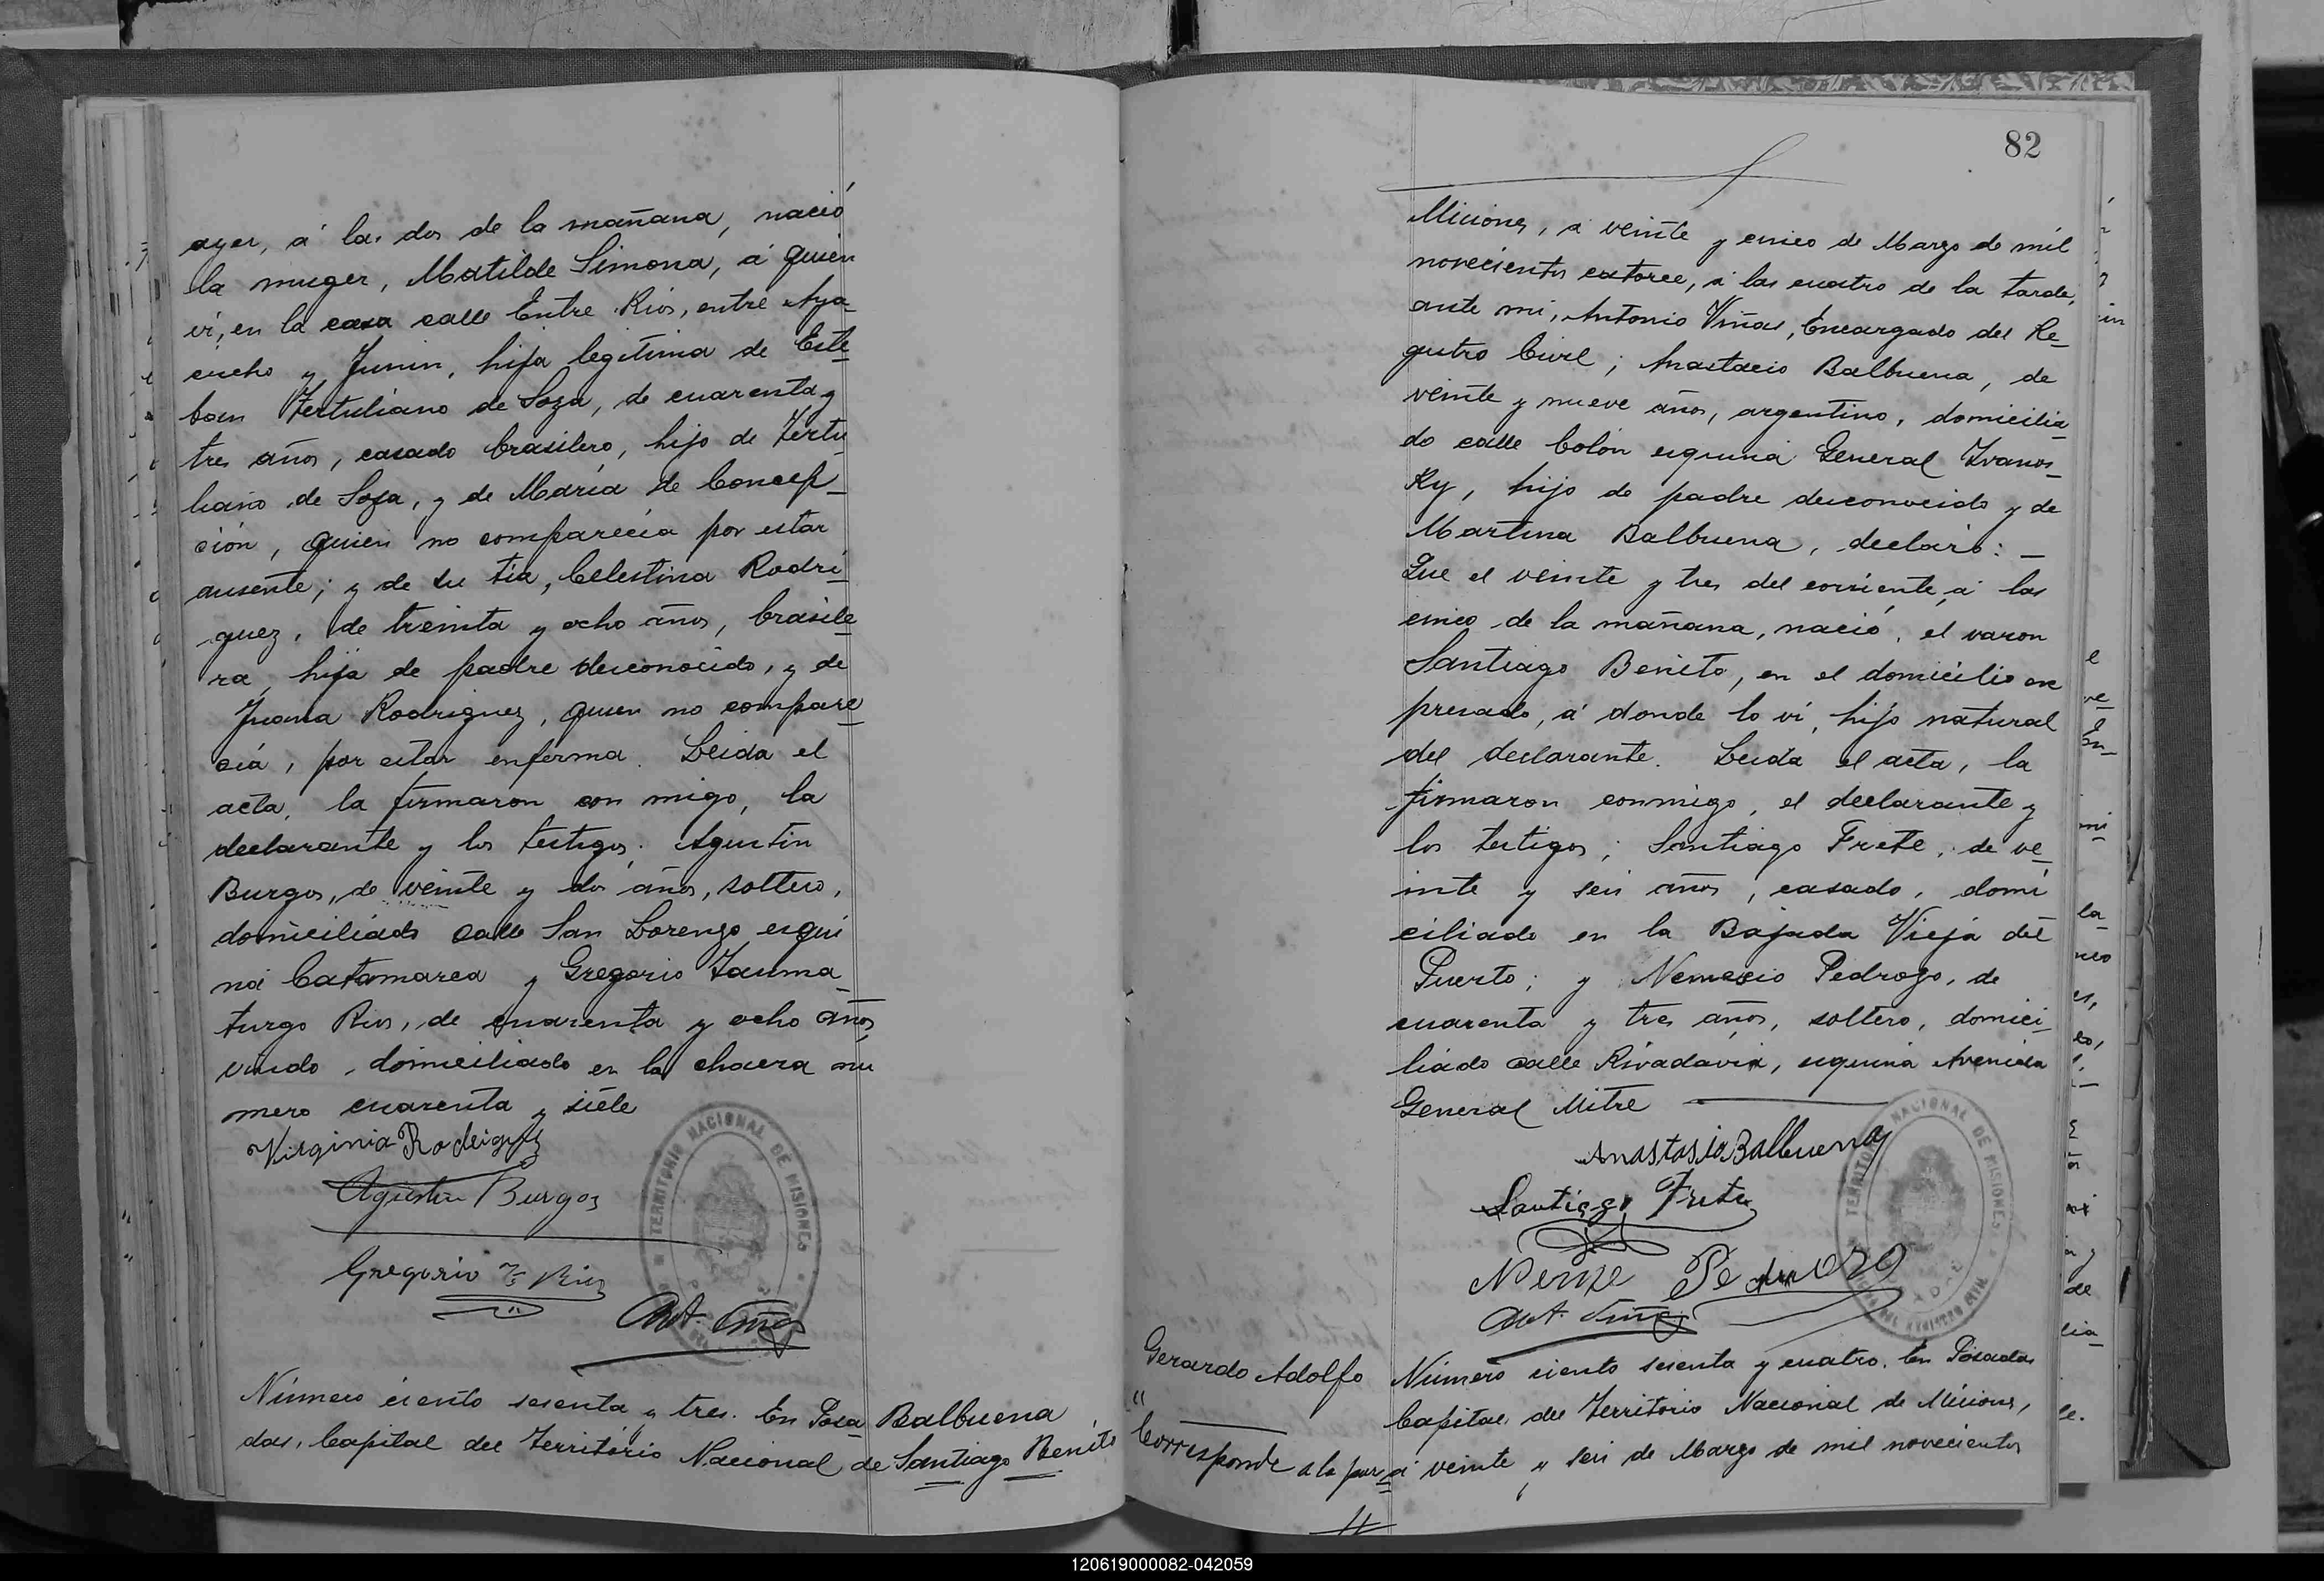 ayer, á las dos de la mañana, nació
la muger, Matilde Simona, á quien
ví, en la casa calle Entre Rios, entre Aya-
cucho y Junin, hija legitima de Este-
ban Tertuliano de Soza, de cuarenta y
tres años, casado brasilero, hijo de Tertu-
liano de Soza, y de María de Concep-
ción, quien no comparecia por estar
ausente; y de su tia, Celestina Rodri-
guez, de treinta y ocho años, brasile-
ra, hija de padre desconocido, y de
Juana Rodriguez, quien no compare-
cia, por estar enferma. Leida el
acta, la firmaron con migo, la
declarante y los testigos: Agustin
Burgos, de veinte y dos años, soltero,
domiciliado calle San Lorenzo esqui
na Catamarca y Gregorio Tauma-
turgo Rios, de cuarenta y ocho años,
viudo, domiciliado en la chacra nu
mero cuarenta y siete
Virginia Rodriguez
Agustin Burgos
Gregorio T. Rios
Ant. Viñas
TERRITORIO NACIONAL DE MISIONES
Número ciento sesenta y tres. En Posa-
das, Capital del Territorio Nacional de
Balbuena
Santiago Benito
82
Miciones, á veinte y cinco de Marzo de mil
novecientos catorce, á las cuatro de la tarde,
ante mi, Antonio Viñas, Encargado del Re-
gistro Civil; Anastacio Balbuena, de
veinte y nueve años, argentino, domicilia-
do calle Colón esquina General Ivanos-
Ky, hijo de padre desconocido y de
Martina Balbuena, declaró: —
Que el veinte y tres del corriente, á las
cinco de la mañana, nació, el varon
Santiago Benito, en el domicilio ex
presado, á donde lo ví, hijo natural
del declarante. Leida el acta, la
firmaron conmigo, el declarante y
los testigos; Santiago Frete, de ve-
inte y seis años, casado, domi
ciliado en la Bajada Vieja del
Puerto; y Nemesio Pedrozo, de
cuarenta y tres años, soltero, domici-
liado calle Rivadavia, esquina Avenida
General Mitre
Anastasio Balbuena
Santiago Frete
Neme Pedrozo
Ant. Viñas
TERRITORIO NACIONAL DE MISIONES
REGISTRO CIVIL
Gerardo Adolfo
"
Corresponde a la par
Número ciento sesenta y cuatro. En Posadas
Capital del Territorio Nacional de Miciones,
á veinte y seis de Marzo de mil novecientos
120619000082-042059